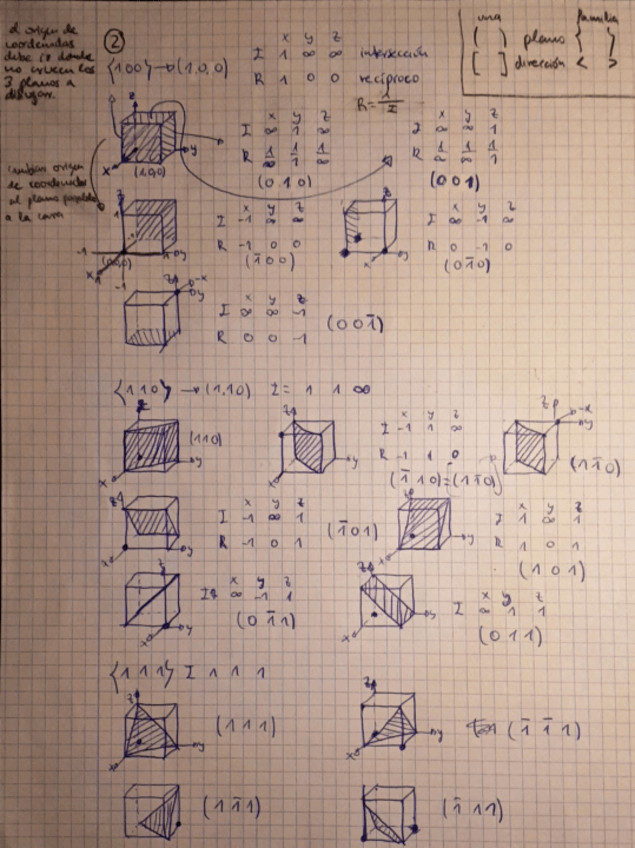 el origen de
coordenadas
debe ir donde
no crucen los
3 planos a
dibujar.
②
{100} → (1,0,0)
x y z
I 1 ∞ ∞ intersección
R 1 0 0 recíproco
R = 1/I
una familia
( ) plano { }
[ ] dirección < >
cambiar origen
de coordenadas
al plano paralelo
a la cara
z
x y
(1,0,0)
x y z
I ∞ 1 ∞
R 1/∞ 1/1 1/∞
(0 1 0)
x y z
I ∞ ∞ 1
R 1/∞ 1/∞ 1/1
(001)
z
1
-1
(0,0,0)
y
x
-1
x y z
I -1 ∞ ∞
R -1 0 0
(1̄ 0 0)
z
x y
x y z
I ∞ -1 ∞
R 0 -1 0
(01̄0)
z -x
y
x y z
I ∞ ∞ -1
R 0 0 -1
(0 0 1̄)
{110} → (1,1,0) I = 1 1 ∞
z
(110)
x y
z
x y
x y z
I -1 1 ∞
R -1 1 0
(1̄ 1 0) = (1 1̄ 0)
z -x
y
(1 1̄ 0)
z
x y
x y z
I -1 ∞ 1
R -1 0 1
(1̄ 0 1)
z
x y
x y z
I 1 ∞ 1
R 1 0 1
(1 0 1)
z
x y
x y z
I ∞ -1 1
(0 1̄ 1)
z
x y
x y z
I ∞ 1 1
(0 1 1)
{111} I 1 1 1
z
x y
(1 1 1)
z
x y
(1̄ 1̄ 1)
(1 1̄ 1)
(1̄ 1 1)